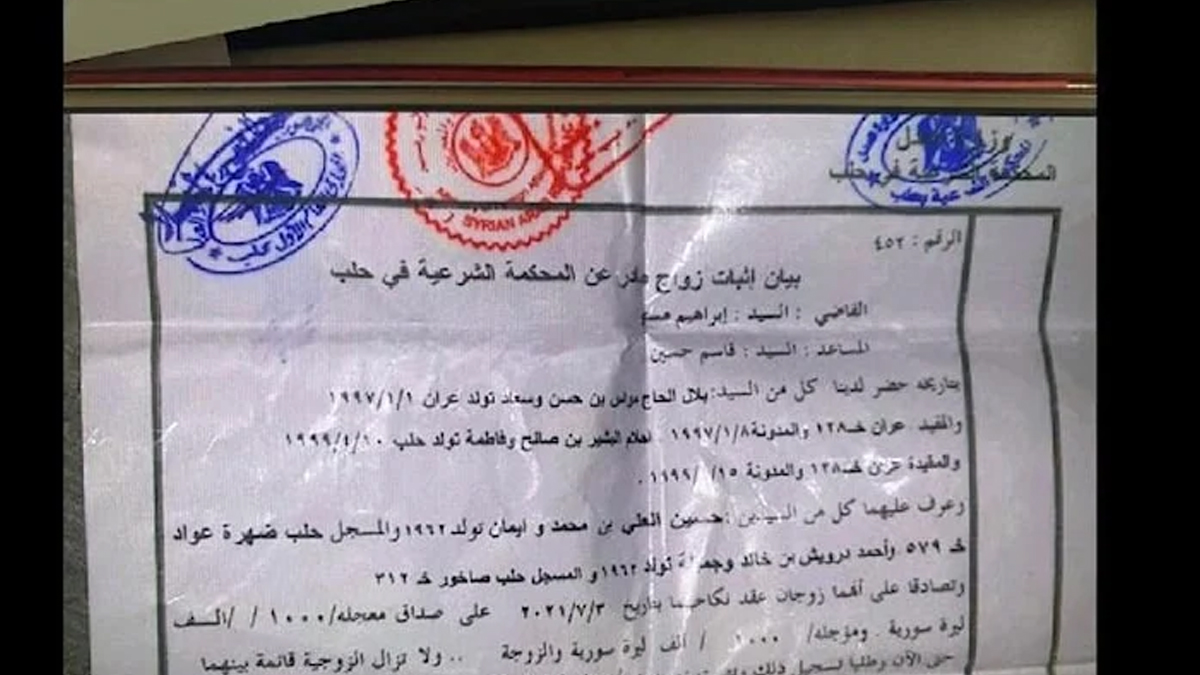 SYRIAN ARA
المحكمة الشرعية في حلب
الشرعية بحلب
الأول بحلب
الرقم : ٤٥٢
بيان إثبات زواج صادر عن المحكمة الشرعية في حلب
القاضي : السيد : إبراهيم
المساعد : السيد : قاسم حسين
بتاريخه حضر لدينا كل من السيد: بلال الحاج بن حسن وسعاد تولد عران ١٩٩٧/١/١
والمقيد عران خـ١٢٨ والمدونة ١٩٩٧/١/٨ احلام البشير بن صالح وفاطمة تولد حلب ١٩٩٩/٤/١٠
والمقيدة عران خـ١٢٨ والمدونة
وعرف عليهما كل من السيدين : حسين العلي بن محمد و ايمان تولد ١٩٦٢ والمسجل حلب ضهرة عواد
خـ ٥٧٩ وأحمد درويش بن خالد تولد ١٩٦٢ و المسجل حلب صاخور خـ ٣١٢
وتصادقا على أنهما زوجان عقد نكاحهما بتاريخ ٢٠٢١/٧/٣ على صداق معجله/١٠٠٠ / /الـف
ليرة سورية . ومؤجله/ ١٠٠٠ / الف ليرة سورية والزوجة .. ولا تزال الزوجية قائمة بينهما
حتى الآن وطلبا تسجيل ذلك